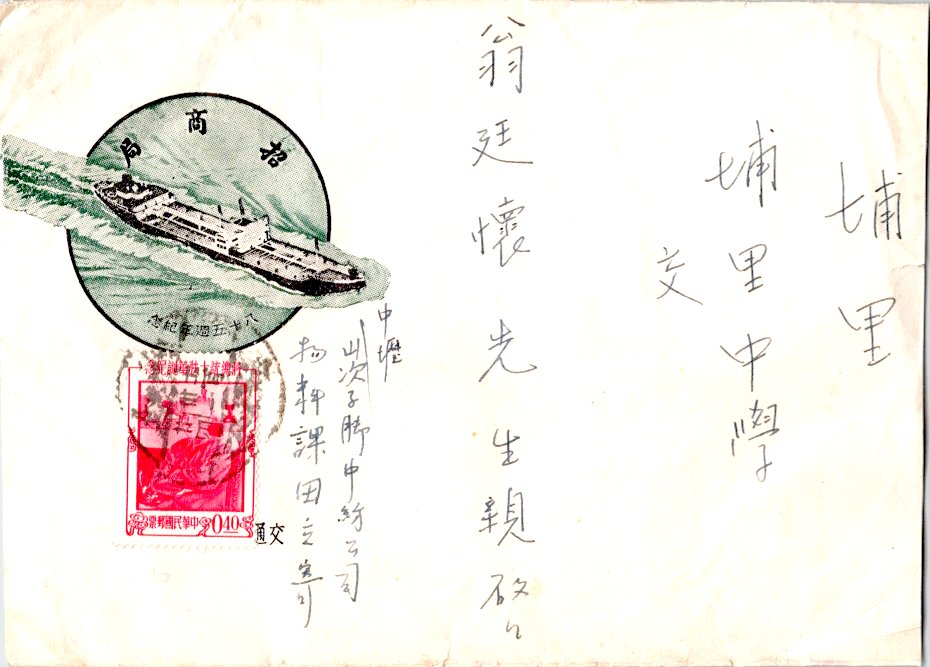 埔里
埔里中學
交
翁廷懷先生親啓
中壢
子腳中紡公司
物料課田立寄
招商局
八十五週年紀念
中華民國郵票
0.40
交通